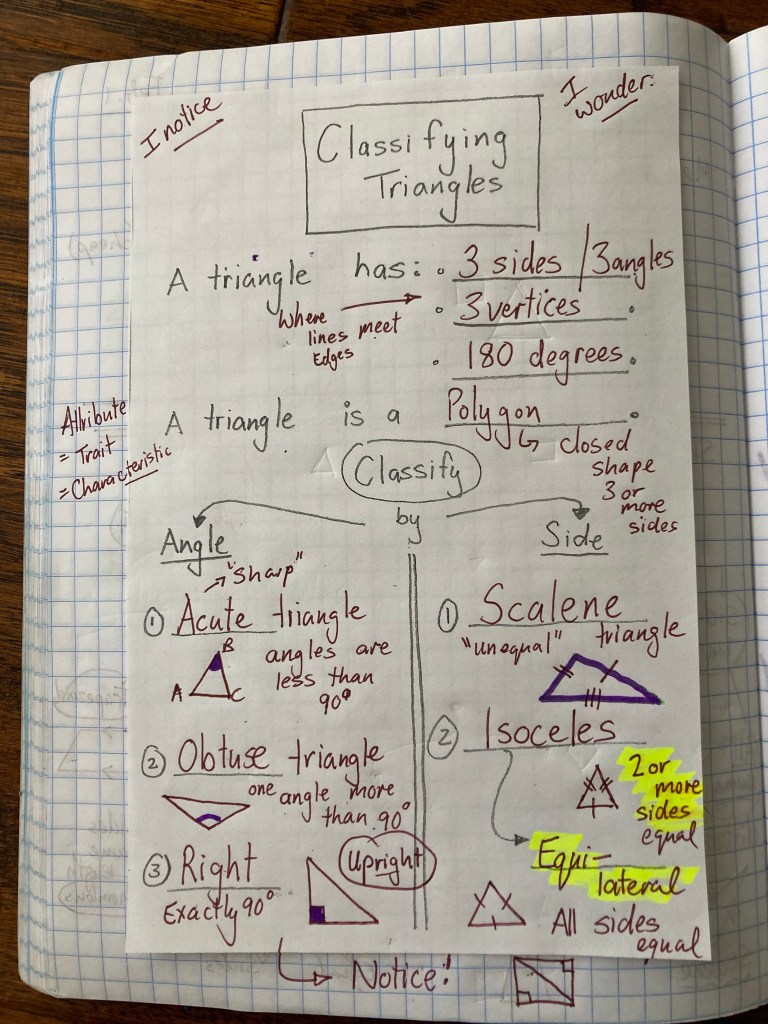 I notice
I
wonder:
Classifying
Triangles
A triangle has: • 3 sides / 3 angles
• 3 vertices.
Where
lines meet
Edges
• 180 degrees.
Attribute
= Trait
= Characteristic
A triangle is a Polygon.
closed
shape
3 or
more
sides
Classify
by
Angle
Side
"Sharp"
① Acute triangle
angles are
less than
90°
A
B
C
② Obtuse triangle
one angle more
than 90°
③ Right
Exactly 90°
Upright
① Scalene
"unequal" triangle
② Isoceles
2 or
more
sides
equal
Equi-
lateral
All sides
equal
Notice!